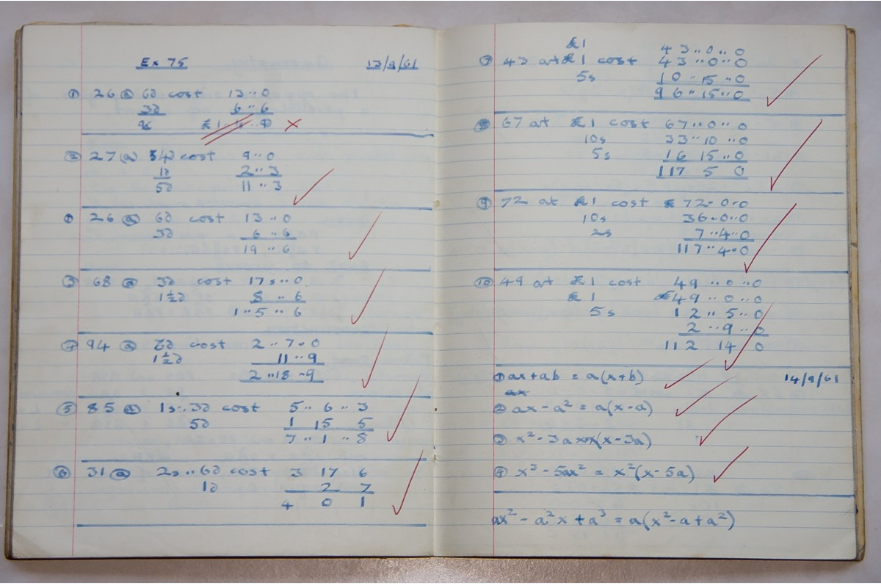 Ex 75 12/9/61
① 26 @ 6d cost 13··0
3d 6··6
9d
② 27 @ 4d cost 9··0
1d 2··3
5d 11··3
① 26 @ 6d cost 13··0
3d 6··6
19··6
③ 68 @ 3d cost 17s··0
1½d 8··6
1··5··6
④ 94 @ 6d cost 2··7··0
1½d 11··9
2··18··9
⑤ 85 @ 1s··3d cost 5··6··3
5d 1 15 5
7··1··8
⑥ 31 @ 2s··6d cost 3 17 6
1d 2 7
4 0 1
£1 43··0··0
⑦ 43 at £1 cost 43··0··0
5s 10··15··0
96··15··0
⑧ 67 at £1 cost 67··0··0
10s 33··10··0
5s 16 15··0
117 5 0
⑨ 72 at £1 cost £72··0··0
10s 36··0··0
2s 7··4··0
117··4··0
⑩ 49 at £1 cost 49··0··0
£1 49··0··0
5s 12··5··0
2··9··0
112 14 0
① ax+ab = a(x+b) 14/9/61
② ax-a² = a(x-a)
③ x²-3ax x(x-3a)
④ x³-5ax² = x²(x-5a)
ax²-a²x+a³ = a(x²-a+a²)